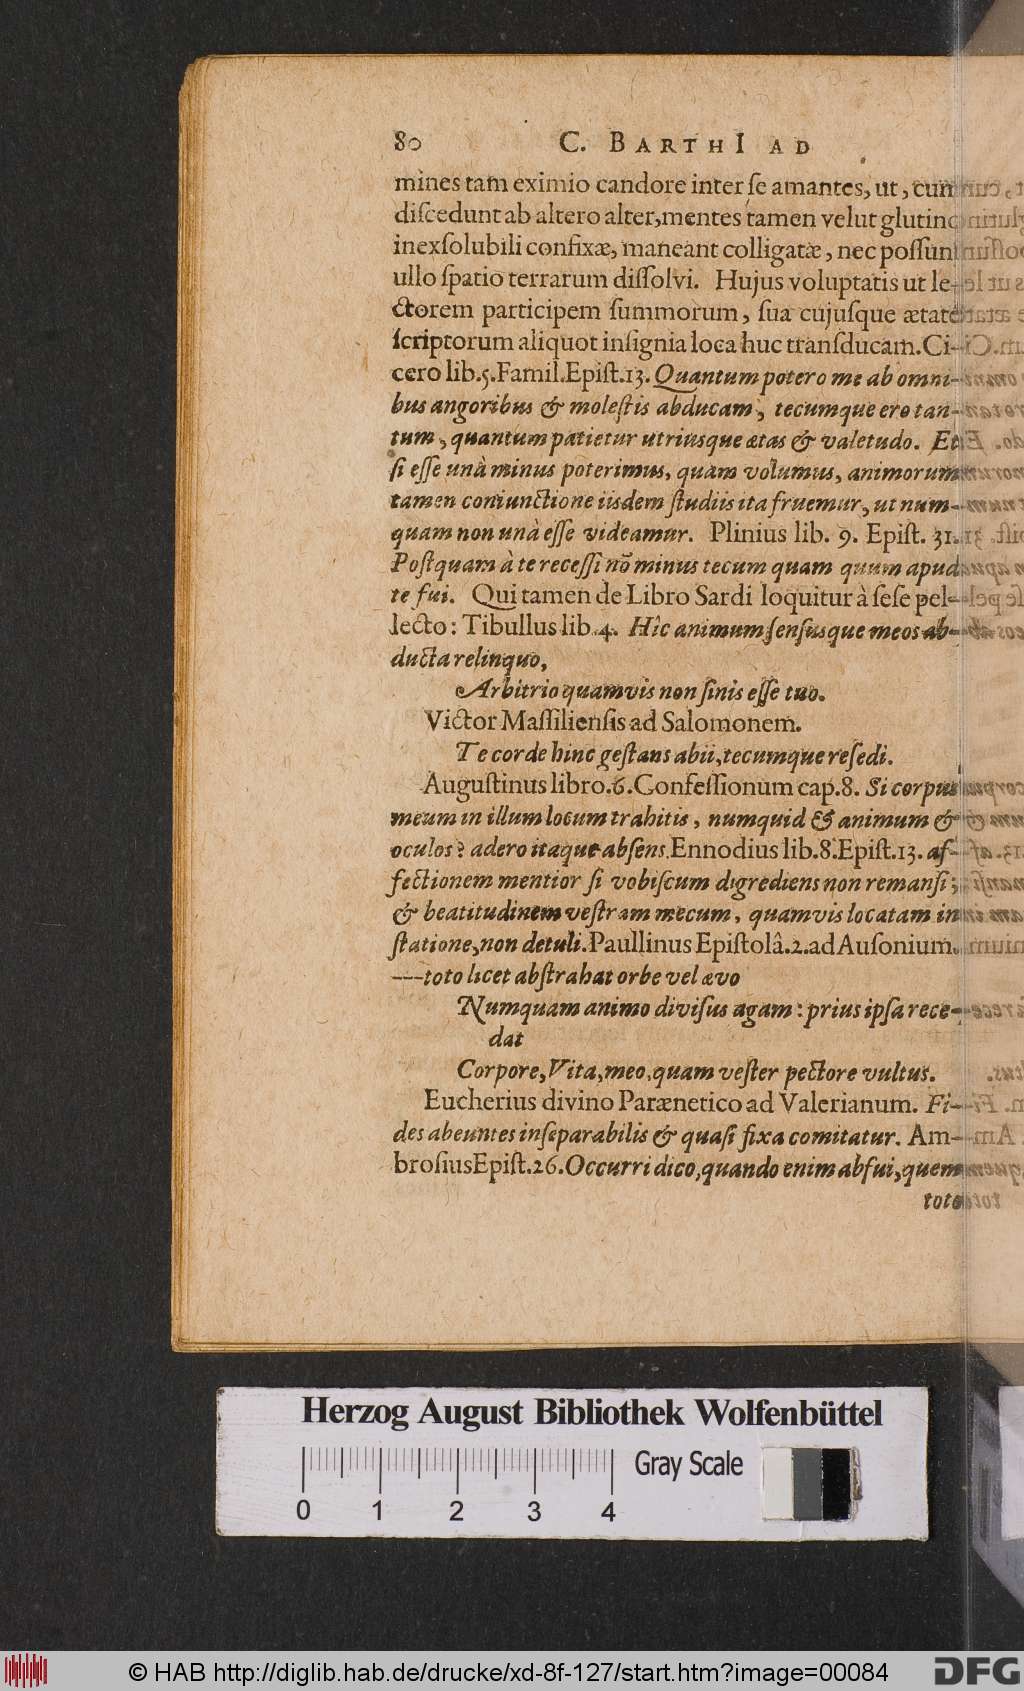 80 C. BARTHI AD
mines tam eximio candore inter ſe amantes, ut, cum
diſcedunt ab altero alter, mentes tamen velut glutino
inexſolubili confixæ, maneant colligatæ, nec poſſunt
ullo ſpatio terrarum diſſolvi. Hujus voluptatis ut le-
ctorem participem ſummorum, ſua cujuſque ætate
ſcriptorum aliquot inſignia loca huc tranſducam. Ci-
cero lib. 5. Famil. Epiſt. 13. Quantum potero me ab omni-
bus angoribus & moleſtis abducam, tecumque ero tan-
tum, quantum patietur utriusque ætas & valetudo. Et
ſi eſſe unà minus poterimus, quam volumus, animorum
tamen coniunctione iisdem ſtudiis ita fruemur, ut num-
quam non unà eſſe videamur. Plinius lib. 9. Epiſt. 31.
Poſtquam à te receſſi nõ minus tecum quam quum apud
te fui. Qui tamen de Libro Sardi loquitur à ſeſe pel-
lecto: Tibullus lib. 4. Hic animum ſenſusque meos ab-
ducta relinquo,
Arbitrio quamvis non ſinis eſſe tuo.
Victor Maſſilienſis ad Salomonem.
Te corde hinc geſtans abii, tecumque reſedi.
Auguſtinus libro. 6. Confeſſionum cap. 8. Si corpus
meum in illum locum trahitis, numquid & animum &
oculos? adero itaque abſens. Ennodius lib. 8. Epiſt. 13. af-
fectionem mentior ſi vobiſcum digrediens non remanſi;
& beatitudinem veſtram mecum, quamvis locatam in
ſtatione, non detuli. Paullinus Epiſtolâ. 2. ad Auſonium.
---toto licet abſtrahat orbe vel ævo
Numquam animo diviſus agam: prius ipſa rece-
dat
Corpore, Vita, meo, quam veſter pectore vultus.
Eucherius divino Parænetico ad Valerianum. Fi-
des abeuntes inſeparabilis & quaſi fixa comitatur. Am-
broſius Epiſt. 26. Occurri dico, quando enim abfui, quem
toto
Herzog August Bibliothek Wolfenbüttel
0 1 2 3 4 Gray Scale
© HAB http://diglib.hab.de/drucke/xd-8f-127/start.htm?image=00084 DFG